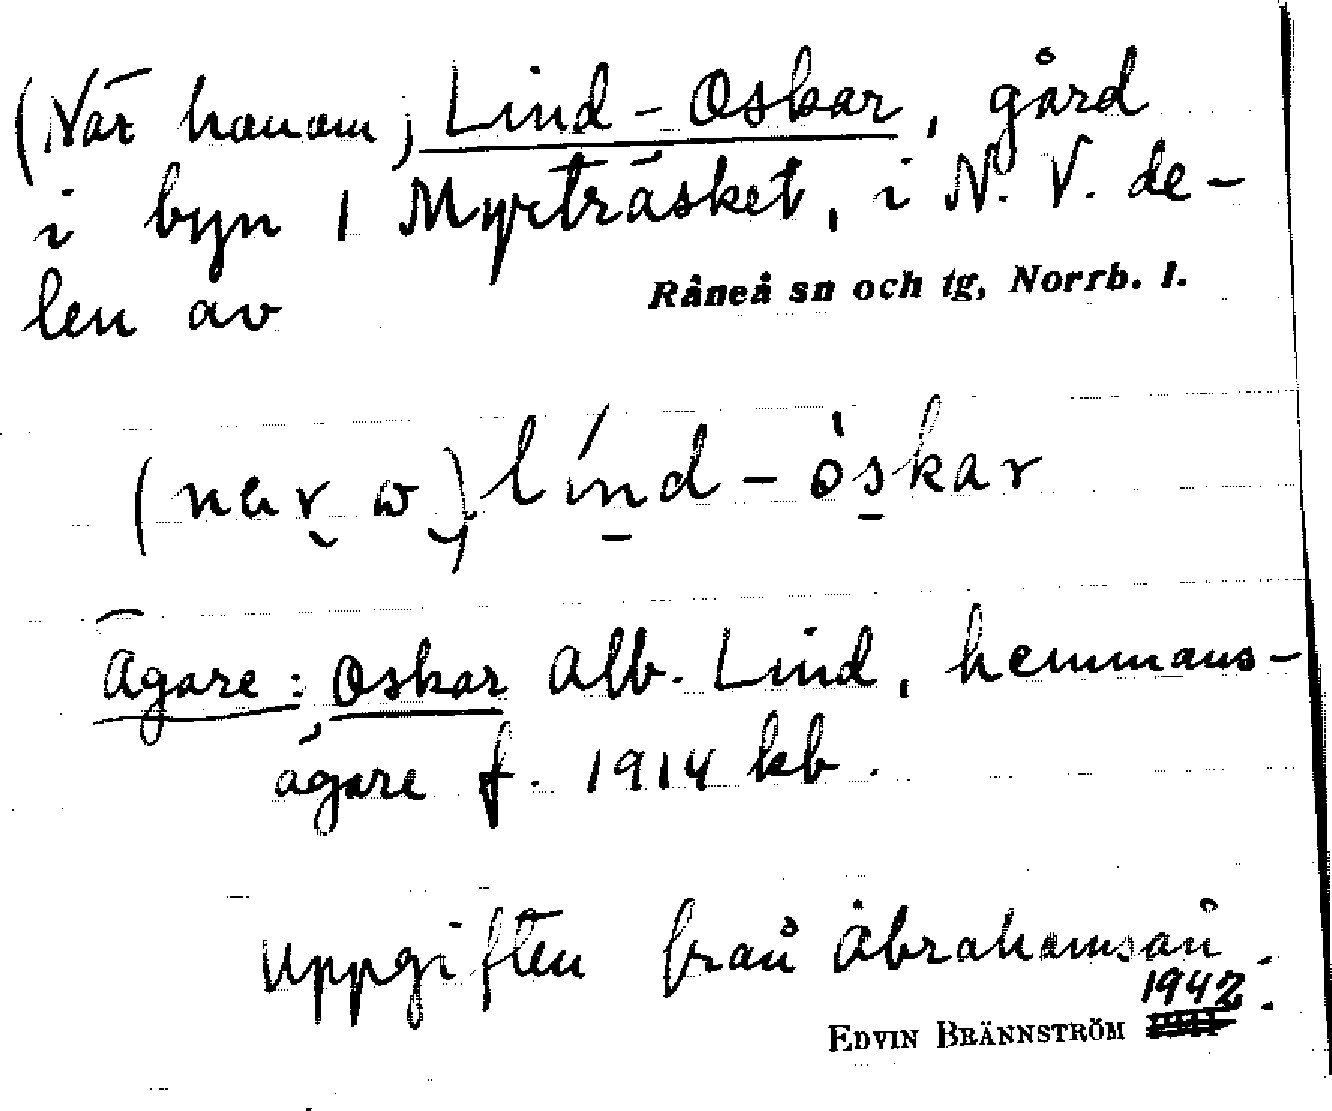 (När honom) Lind-Oskar, gård
i byn 1 Myrträsket, i N.V. de-
len av
Råneå sn och tg, Norrb. l.
línd-òskar
Ägare: Oskar Alb. Lind, hemmans-
ägare f. 1914 kb.
Uppgiften från Abrahamsån.
1942.
EDVIN BRÄNNSTRÖM